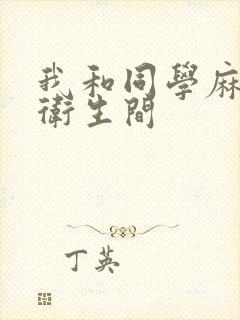 我和同學麻
衛生間
丁英